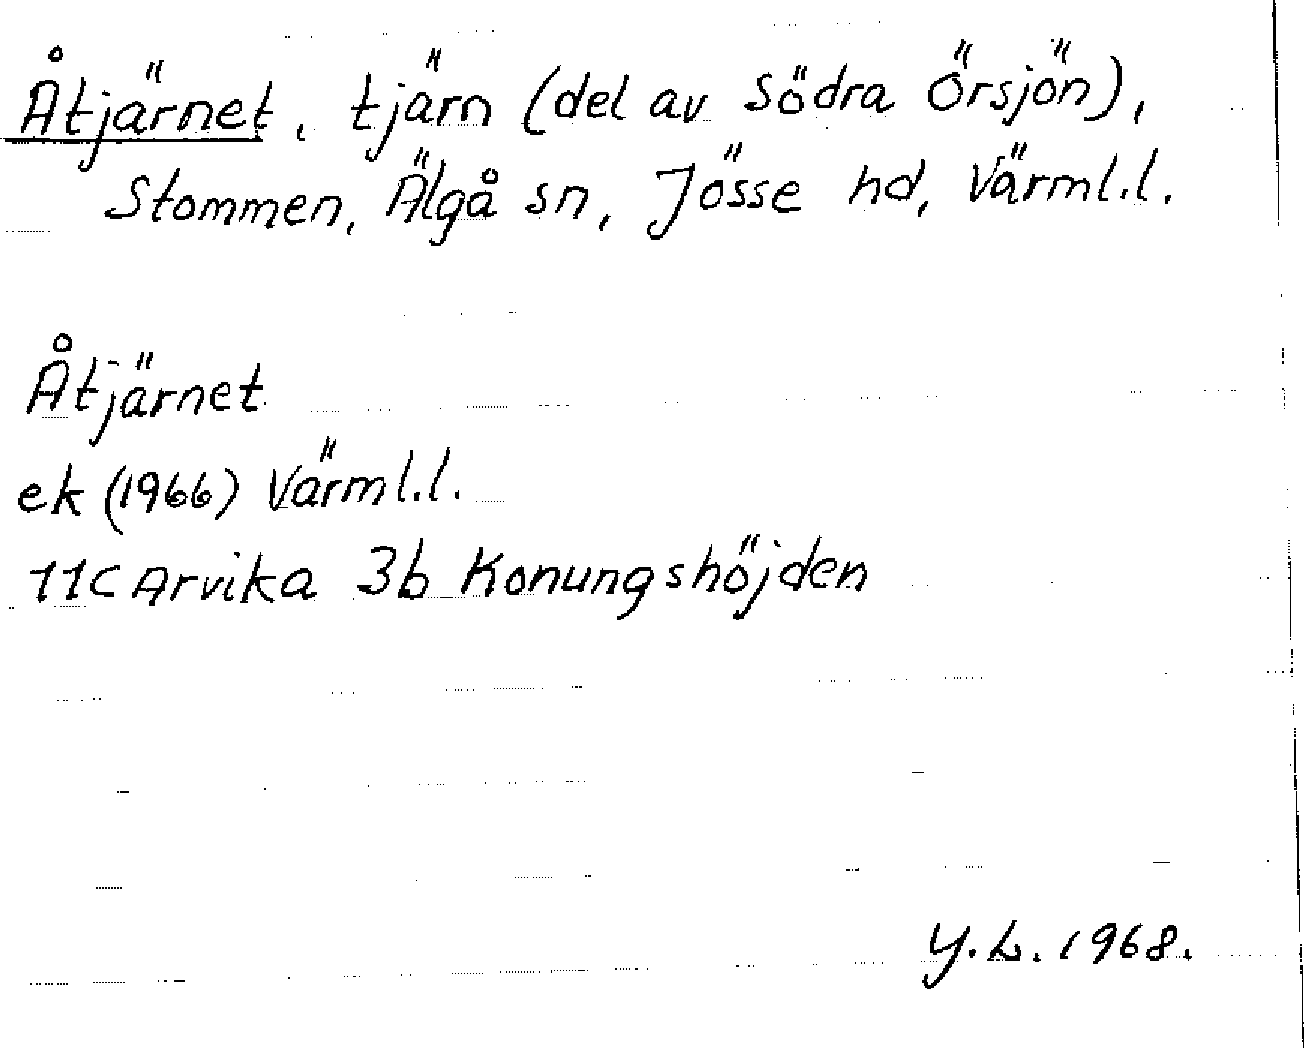 Åtjärnet, tjärn (del av Södra Örsjön),
Stommen, Älgå sn, Jösse hd, Värml.l.
Åtjärnet
ek (1966) Värml.l.
11C Arvika 3b Konungshöjden
Y.L. 1968.